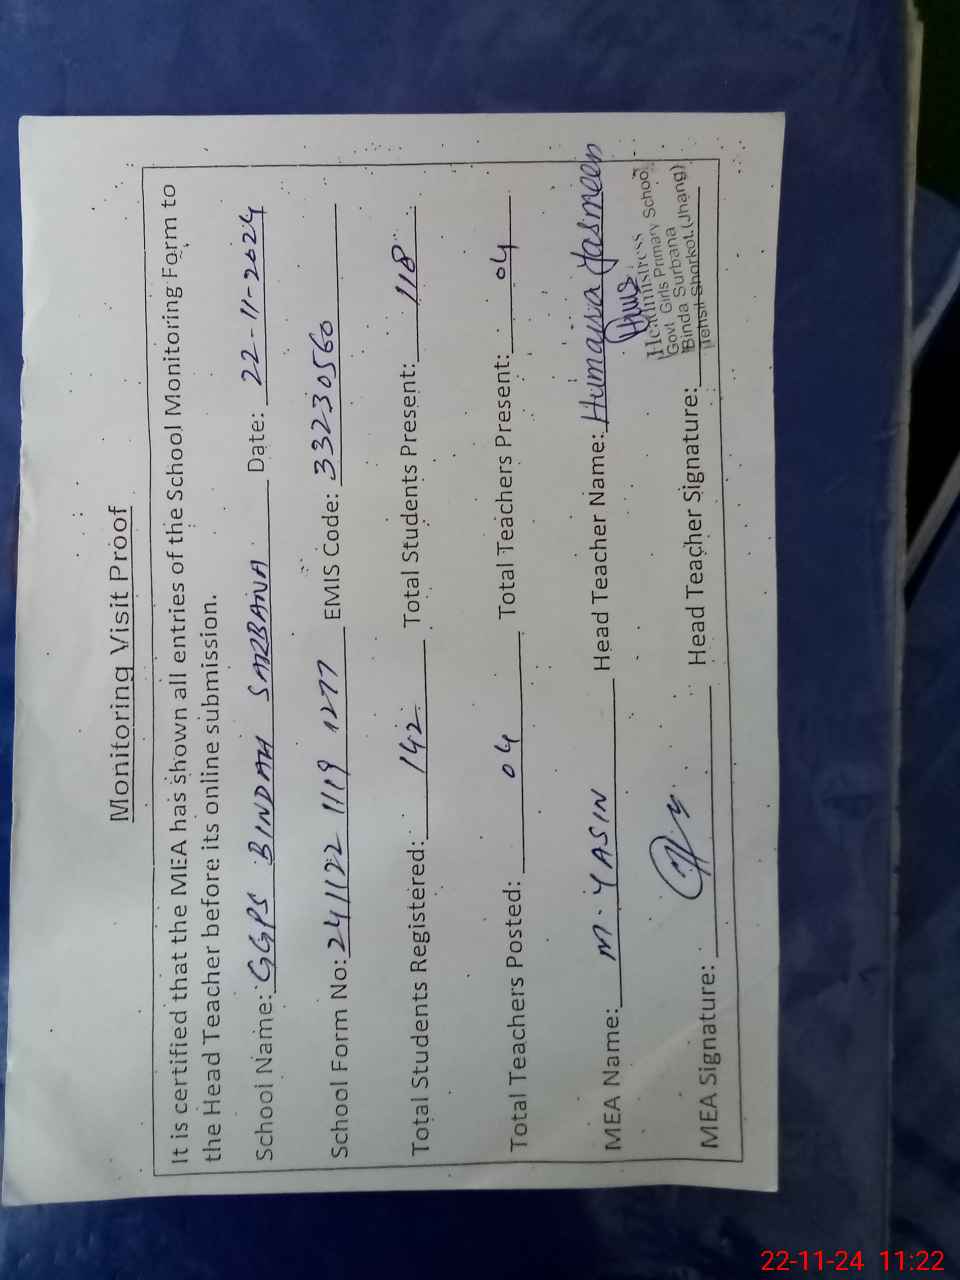 Monitoring Visit Proof
It is certified that the MEA has shown all entries of the School Monitoring Form to
the Head Teacher before its online submission.
School Name: GGPS BINDAH SARBANA Date: 22-11-2024
School Form No: 241122 1119 1277 EMIS Code: 33230560
Total Students Registered: 142 Total Students Present: 118
Total Teachers Posted: 04 Total Teachers Present: 04
MEA Name: M. YASIN Head Teacher Name: Humaira Yasmeen
MEA Signature: Head Teacher Signature:
Headmistress
Govt Girls Primary School
Binda Surbana
Tehsil Shorkot.(Jhang)
22-11-24 11:22